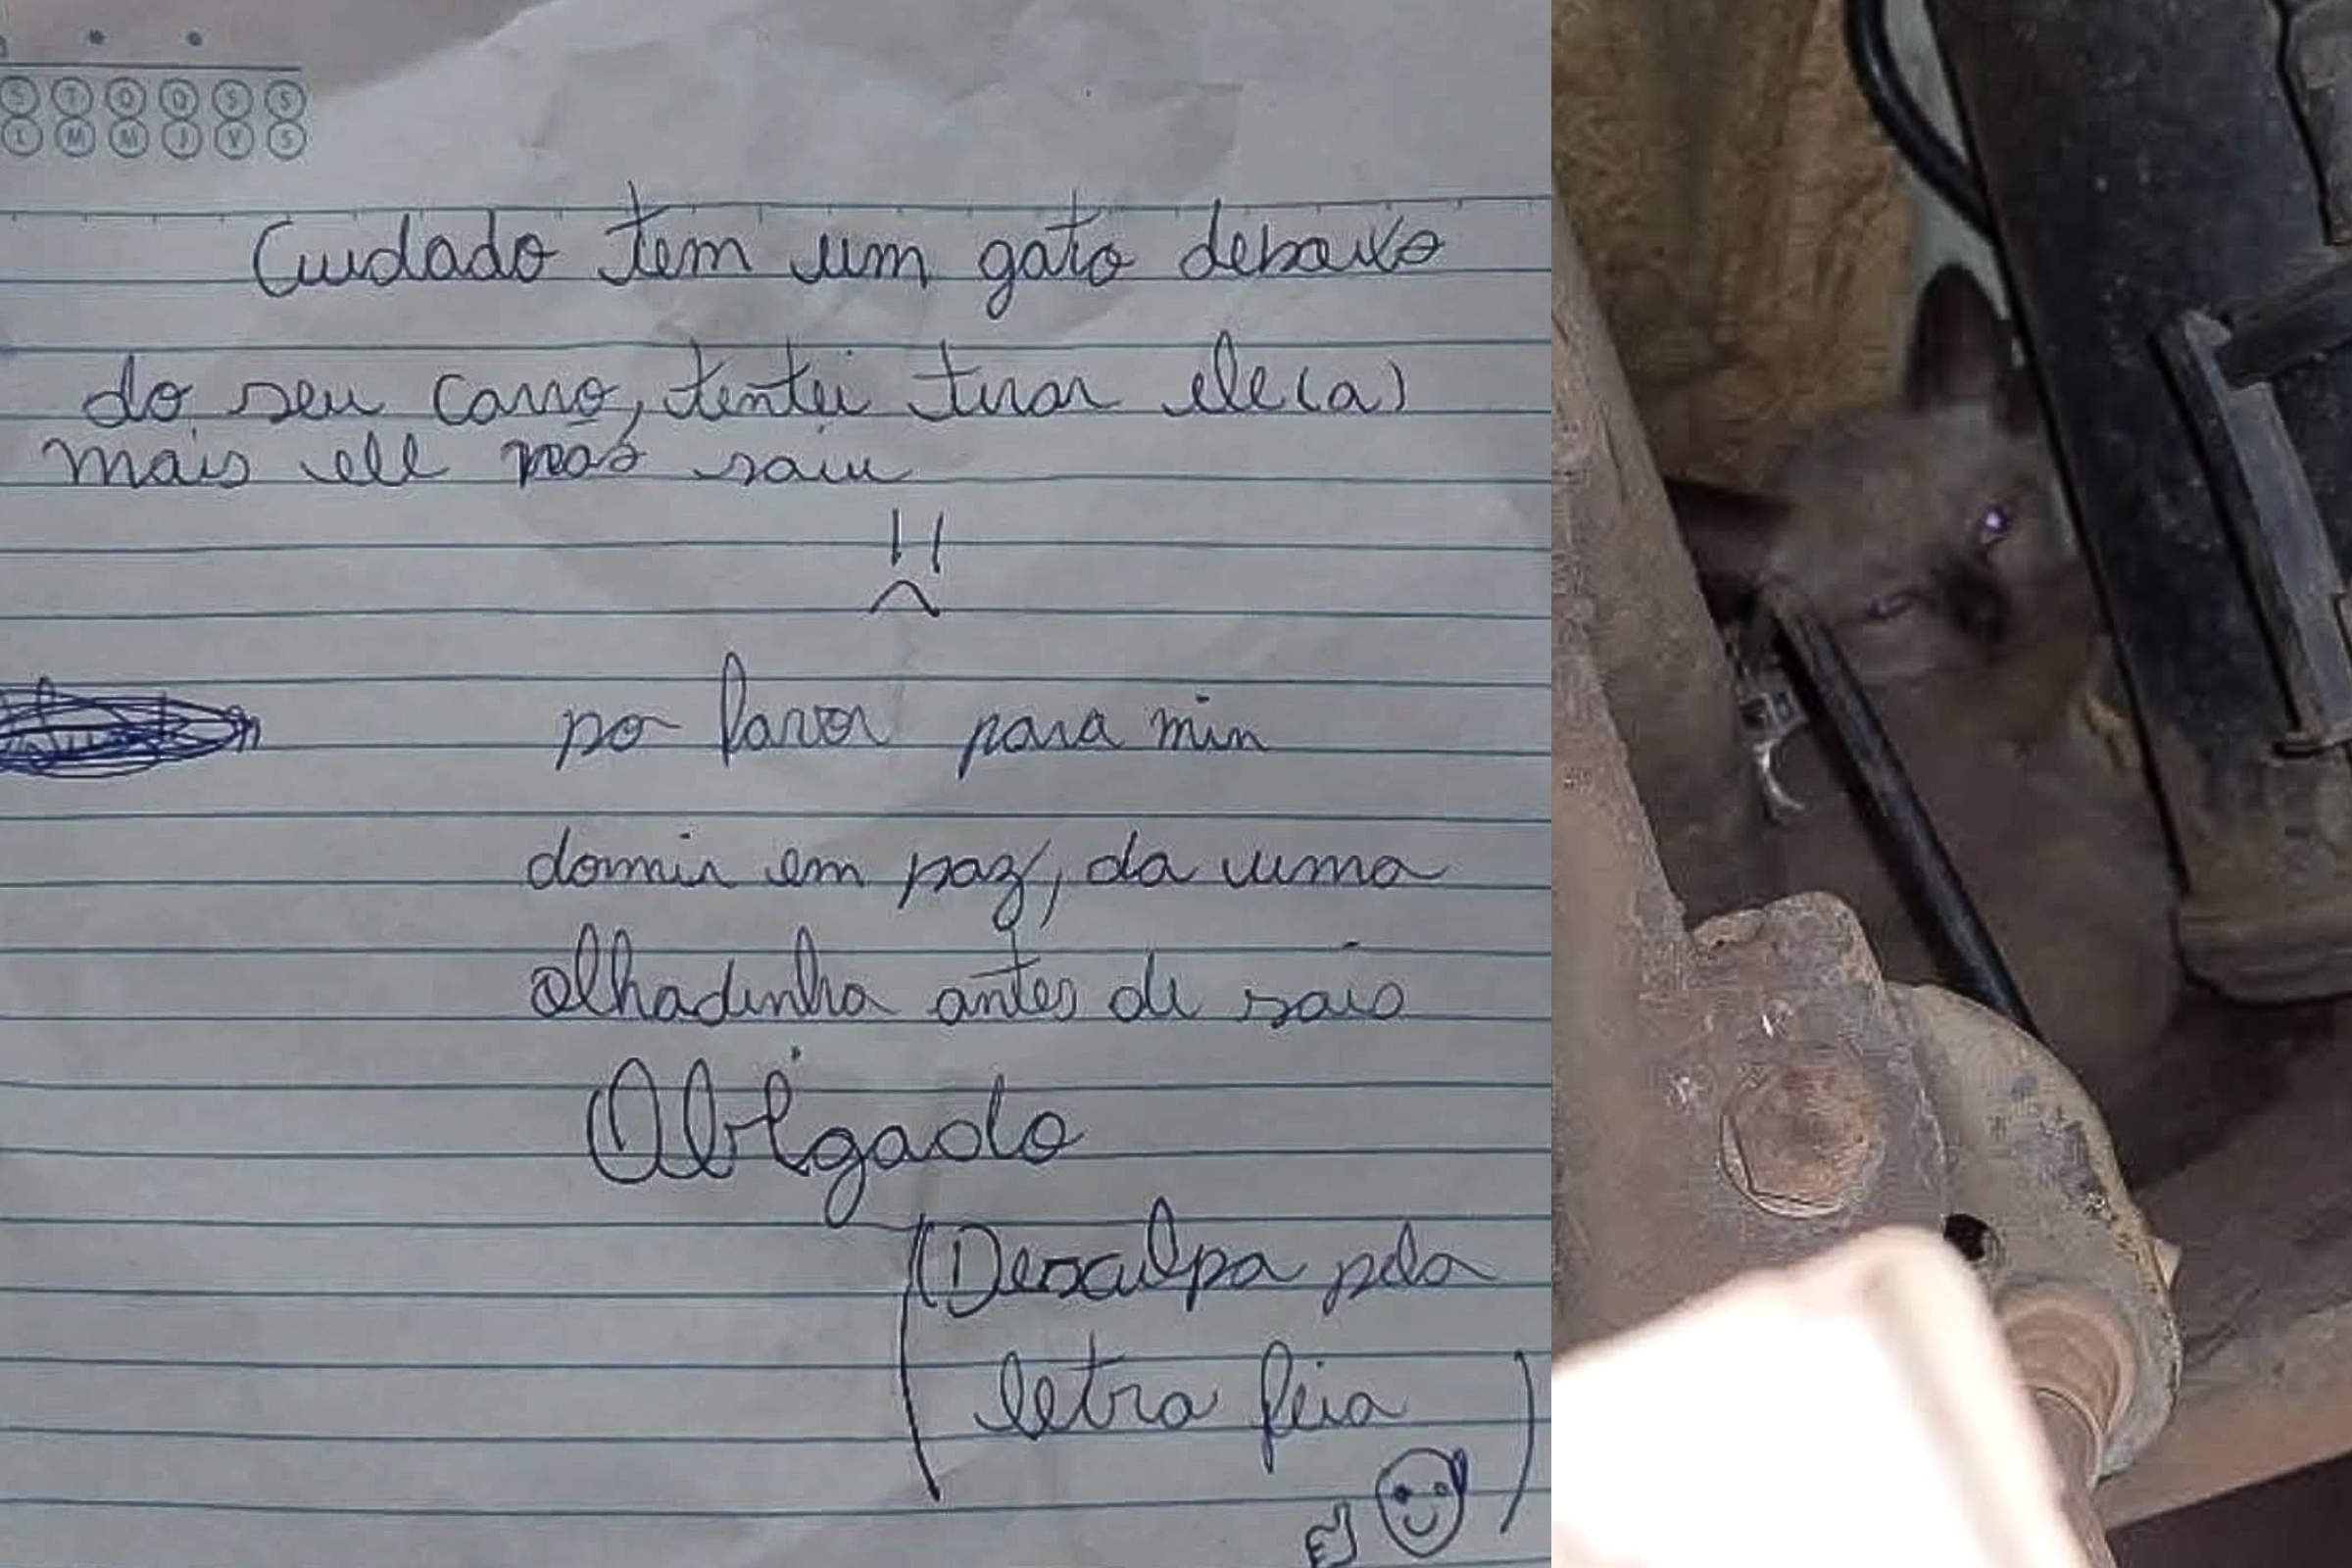 S T Q Q S S
L M M J V S
Cuidado tem um gato debaixo
do seu carro, tentei tirar ele(a)
mais ele não saiu
por favor para min
dormir em paz, da uma
olhadinha antes de sair
Obrigado
(Desculpa pela
letra feia)